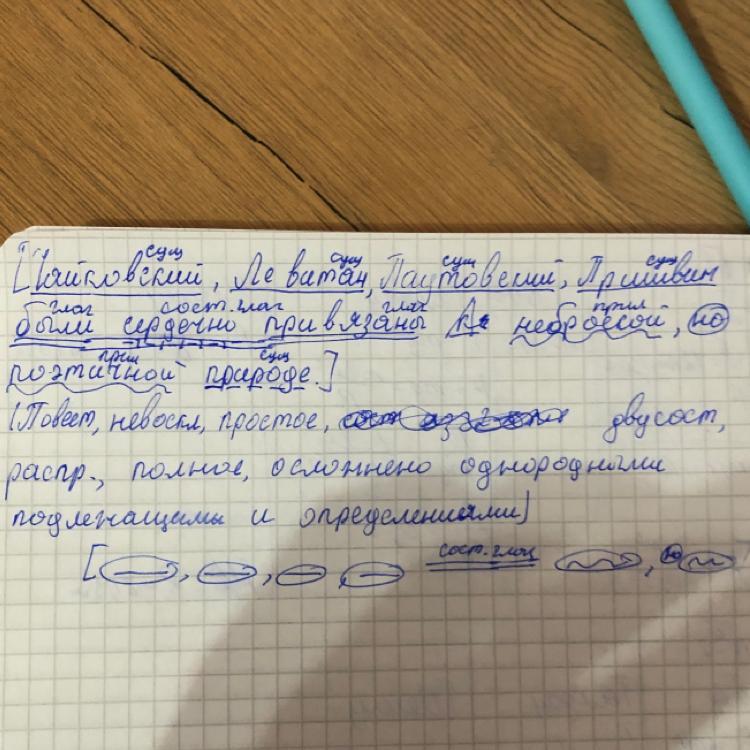 сущ сущ сущ сущ
[Чайковский, Левитан, Паутовский, Пришвин
глаг сост.глаг глаг прил
были сердечно привязаны к неброской, но
прил сущ
поэтичной природе.]
(Повест, невоскл, простое, двусост,
распр., полное, осложнено однородными
подлежащими и определениями)
сост.глаг
[ , , , , но